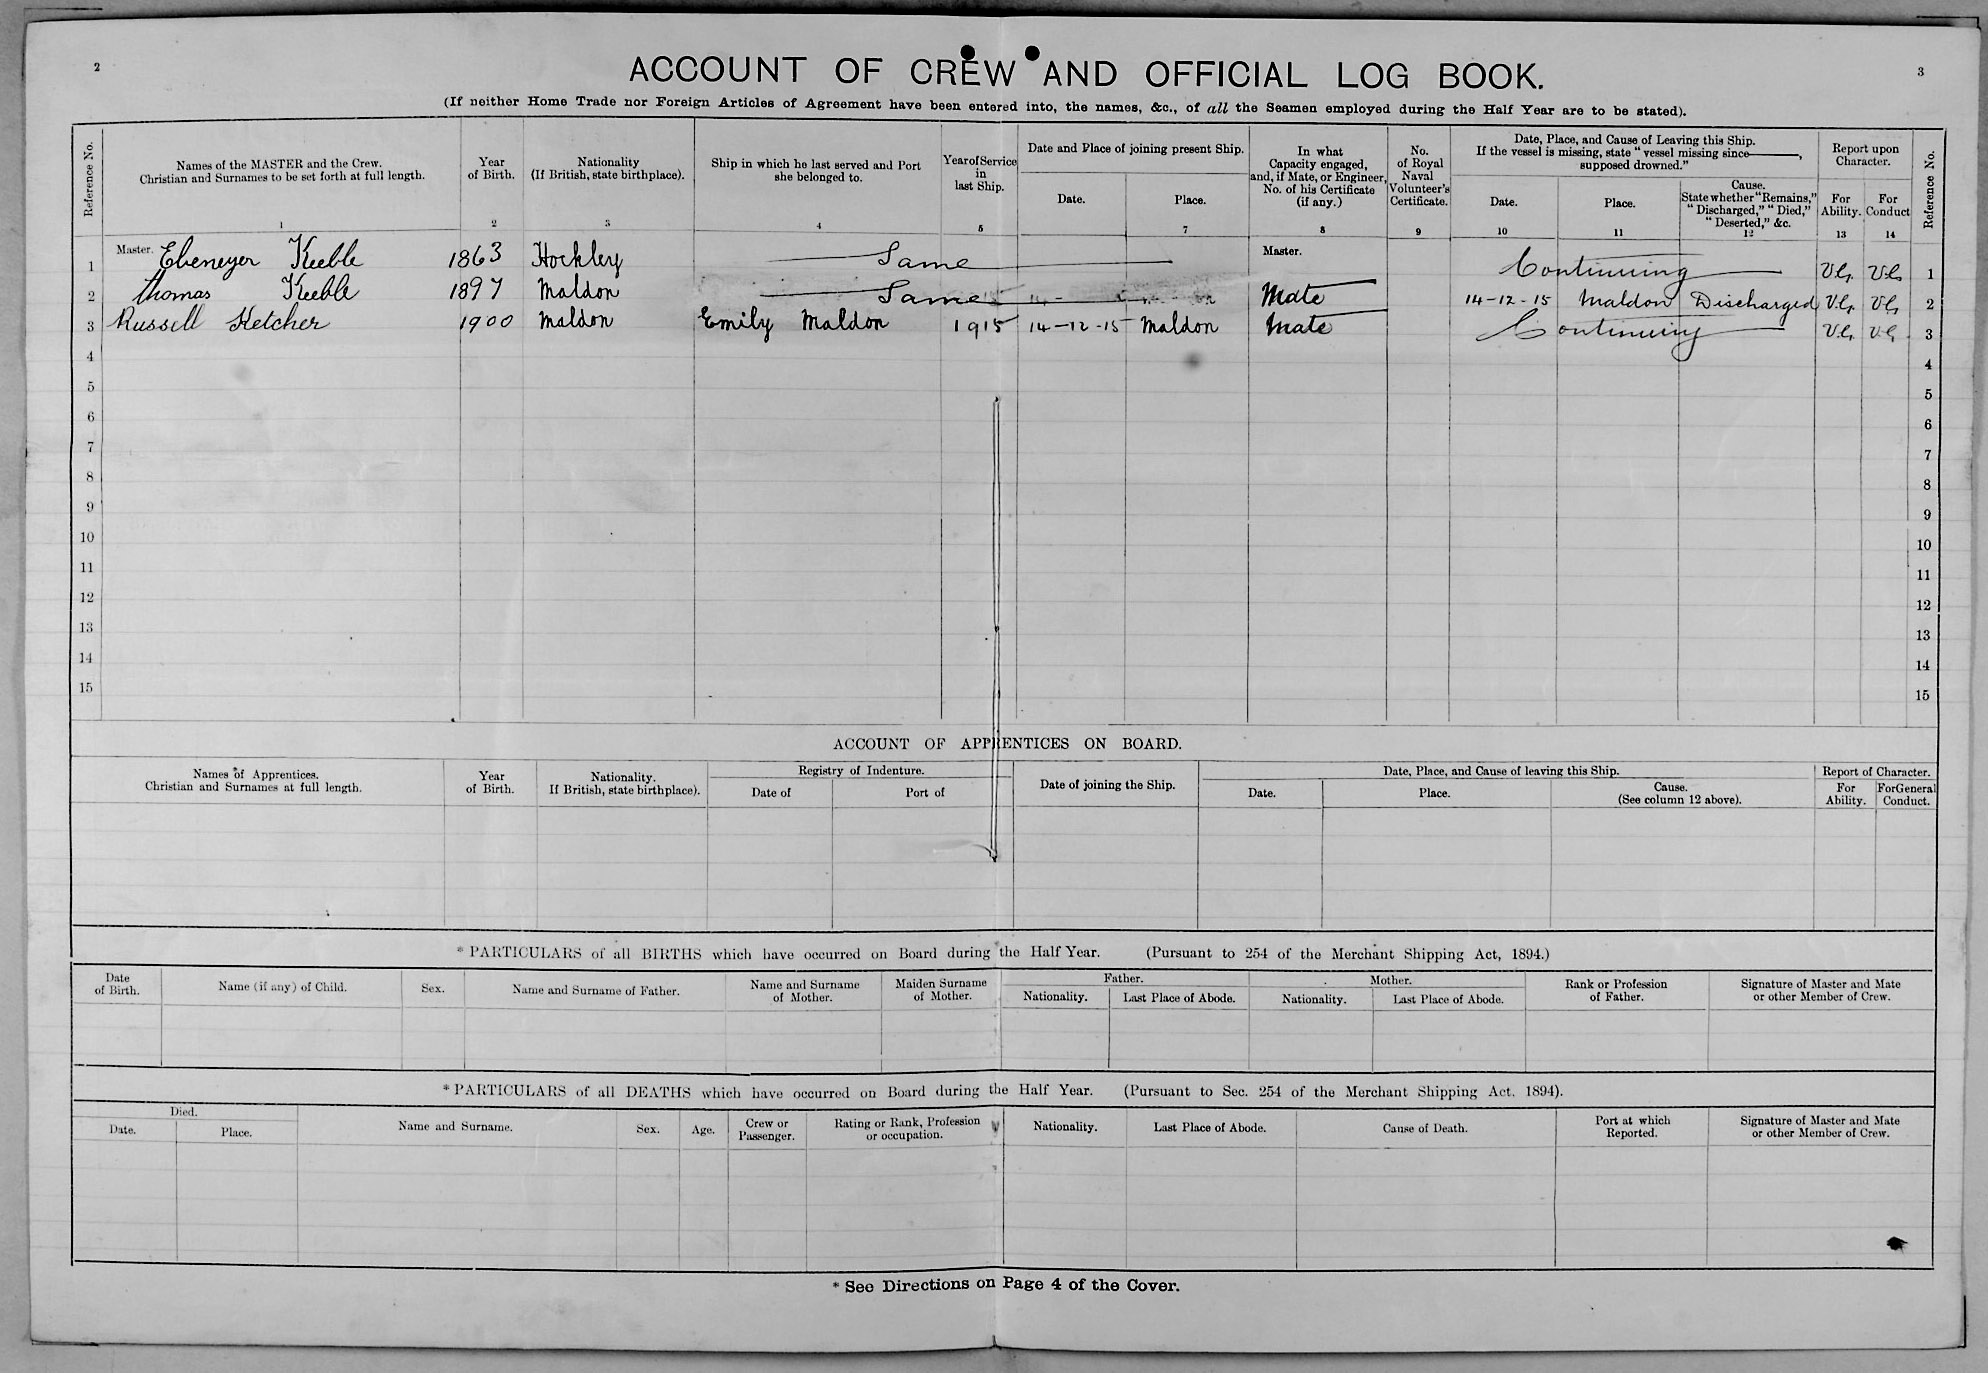 2
3
ACCOUNT OF CREW AND OFFICIAL LOG BOOK.
(If neither Home Trade nor Foreign Articles of Agreement have been entered into, the names, &c., of all the Seamen employed during the Half Year are to be stated).
Reference No.
Names of the MASTER and the Crew.
Christian and Surnames to be set forth at full length.
1
Year
of Birth.
2
Nationality
(If British, state birthplace).
3
Ship in which he last served and Port
she belonged to.
4
Year of Service
in
last Ship.
5
Date and Place of joining present Ship.
Date.
Place.
7
In what
Capacity engaged,
and, if Mate, or Engineer,
No. of his Certificate
(if any.)
8
No.
of Royal
Naval
Volunteer's
Certificate.
9
Date, Place, and Cause of Leaving this Ship.
If the vessel is missing, state "vessel missing since———,
supposed drowned."
Date.
10
Place.
11
Cause.
State whether "Remains,"
"Discharged," "Died,"
"Deserted," &c.
12
Report upon
Character.
For
Ability.
13
For
Conduct
14
Reference No.
1 Master. Ebenezer Keeble 1863 Hockley Same Master. Continuing V.G. V.G. 1
2 Thomas Keeble 1897 Maldon Same Mate 14-12-15 Maldon Discharged V.G. V.G. 2
3 Russell Ketcher 1900 Maldon Emily Maldon 1915 14-12-15 Maldon Mate Continuing V.G. V.G. 3
4 4
5 5
6 6
7 7
8 8
9 9
10 10
11 11
12 12
13 13
14 14
15 15
ACCOUNT OF APPRENTICES ON BOARD.
Names of Apprentices.
Christian and Surnames at full length.
Year
of Birth.
Nationality.
If British, state birthplace).
Registry of Indenture.
Date of
Port of
Date of joining the Ship.
Date, Place, and Cause of leaving this Ship.
Date.
Place.
Cause.
(See column 12 above).
Report of Character.
For
Ability.
For General
Conduct.
* PARTICULARS of all BIRTHS which have occurred on Board during the Half Year. (Pursuant to 254 of the Merchant Shipping Act, 1894.)
Date
of Birth.
Name (if any) of Child.
Sex.
Name and Surname of Father.
Name and Surname
of Mother.
Maiden Surname
of Mother.
Father.
Nationality.
Last Place of Abode.
Mother.
Nationality.
Last Place of Abode.
Rank or Profession
of Father.
Signature of Master and Mate
or other Member of Crew.
* PARTICULARS of all DEATHS which have occurred on Board during the Half Year. (Pursuant to Sec. 254 of the Merchant Shipping Act. 1894).
Died.
Date.
Place.
Name and Surname.
Sex.
Age.
Crew or
Passenger.
Rating or Rank, Profession
or occupation.
Nationality.
Last Place of Abode.
Cause of Death.
Port at which
Reported.
Signature of Master and Mate
or other Member of Crew.
* See Directions on Page 4 of the Cover.